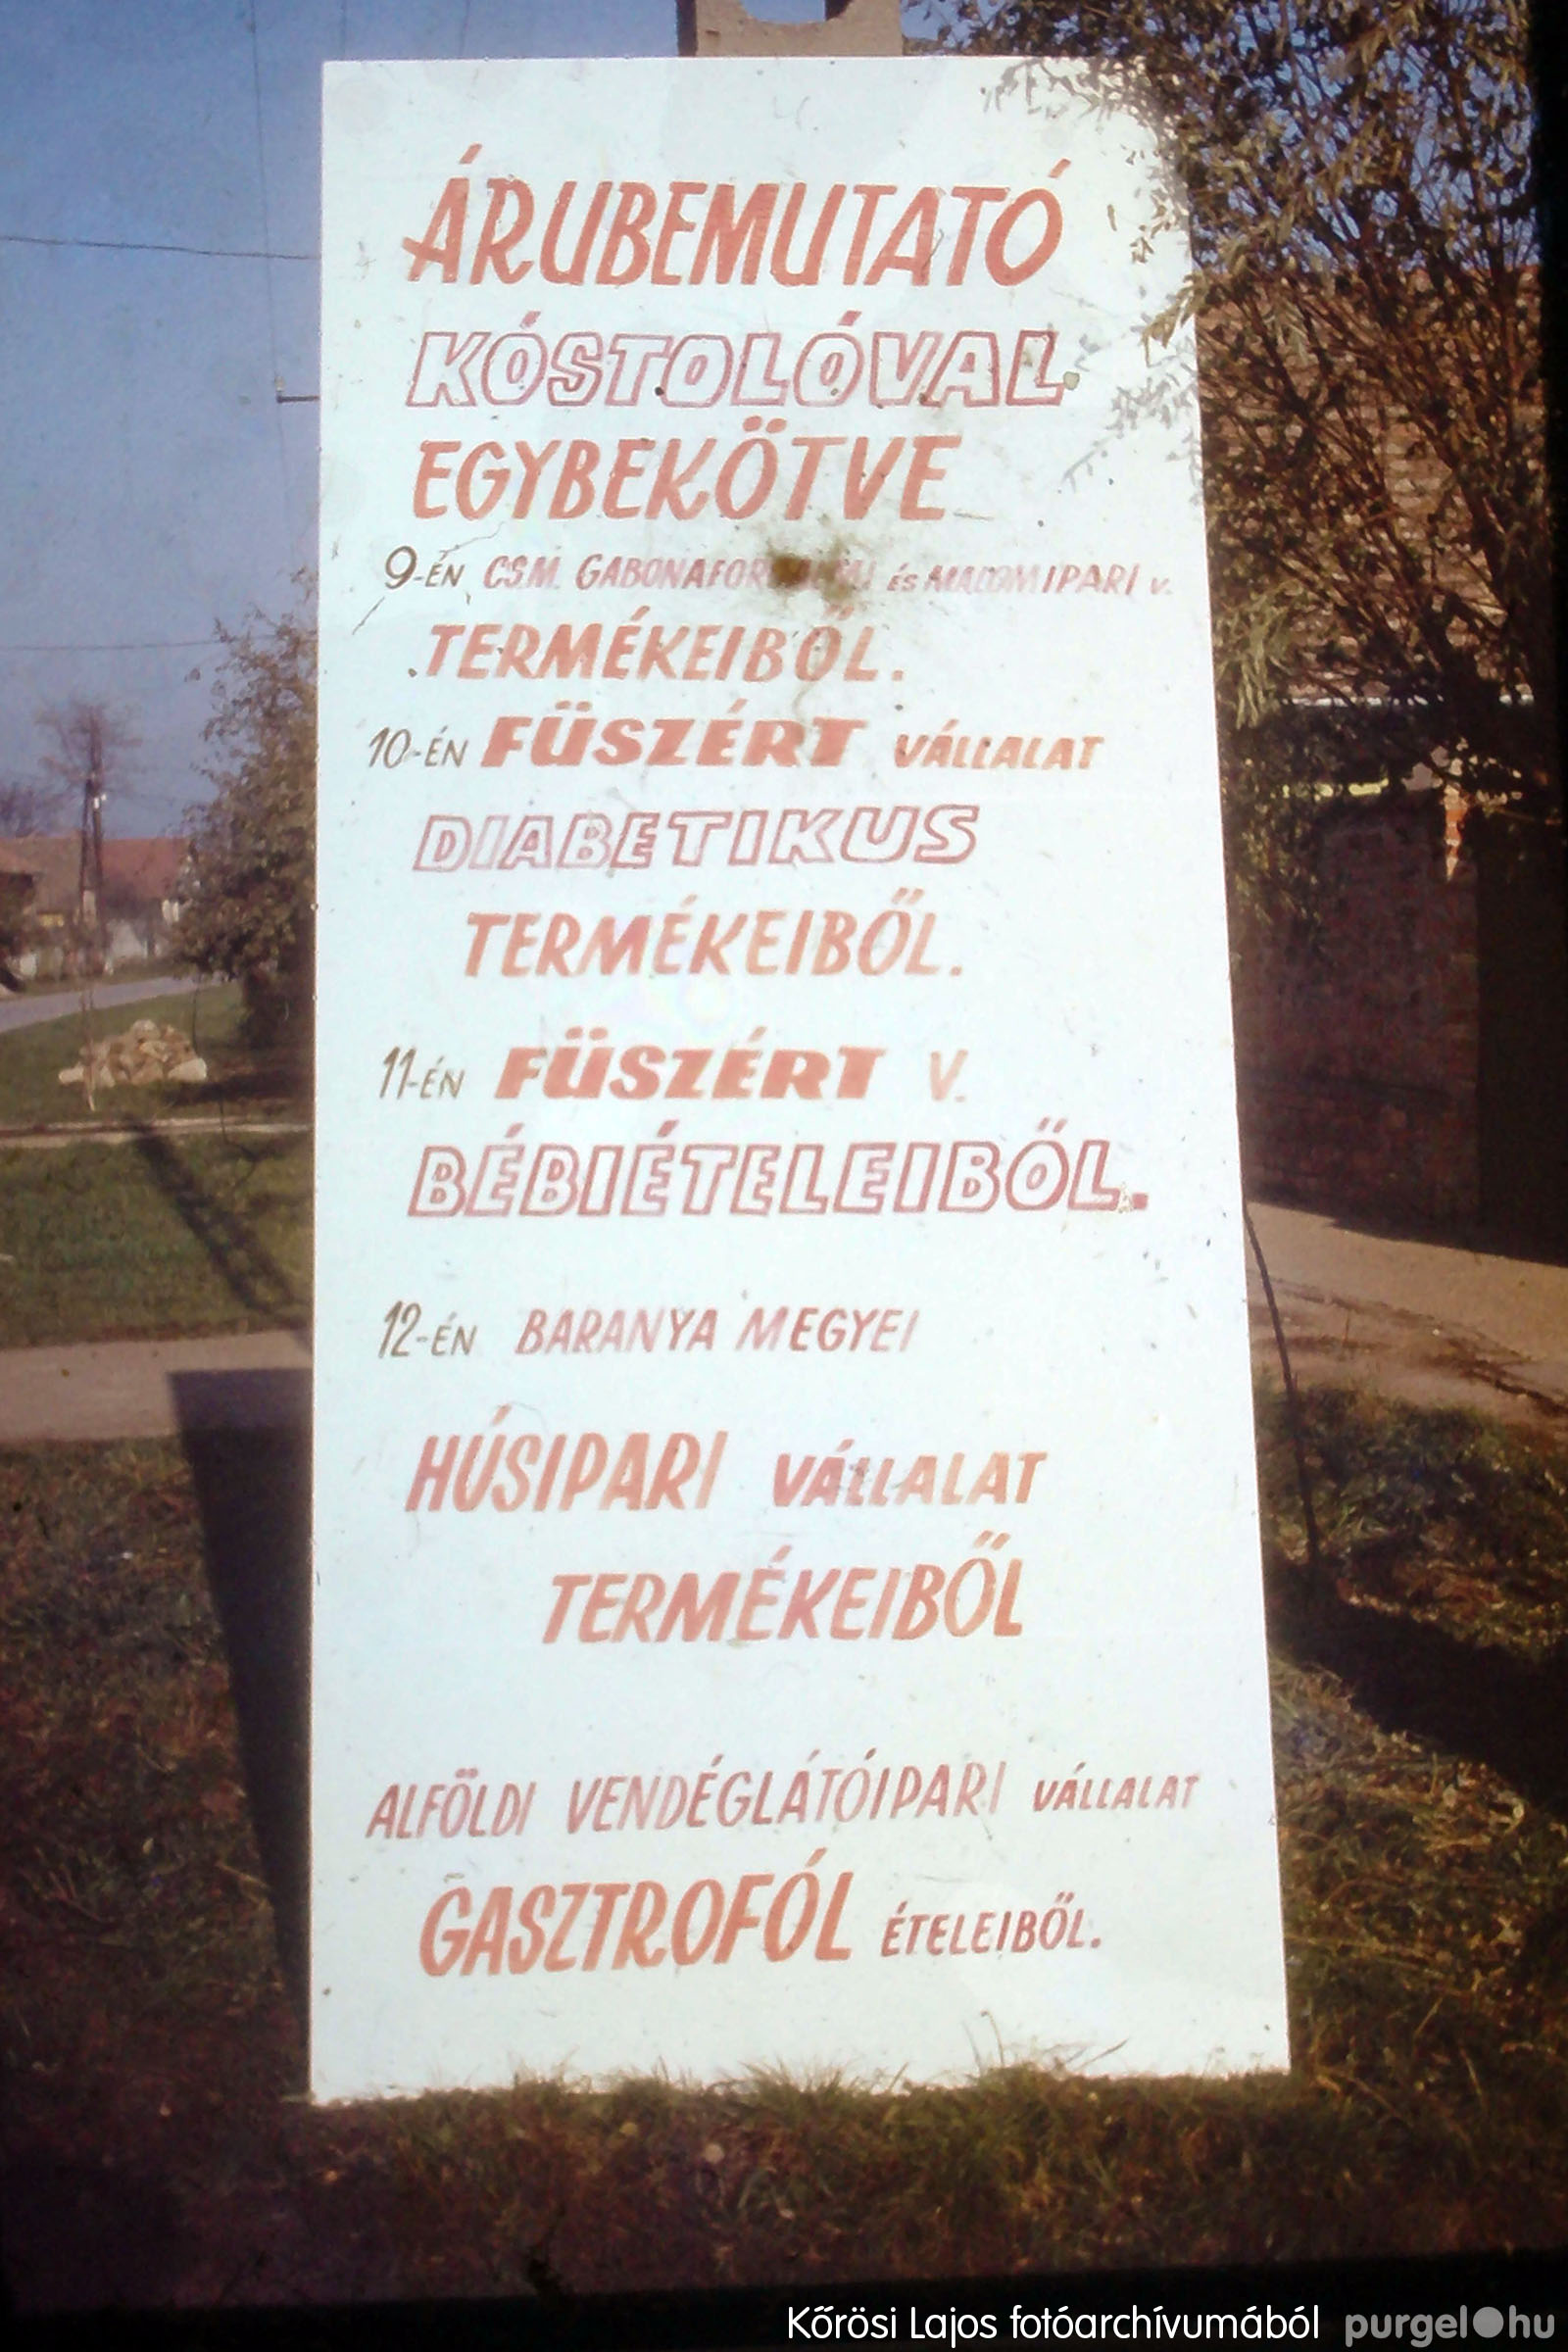 ÁRUBEMUTATÓ
KÓSTOLÓVAL
EGYBEKÖTVE
9-ÉN CS.M. ÉS MALOMIPARI V.
TERMÉKEIBŐL.
10-ÉN FÜSZÉRT VÁLLALAT
DIABETIKUS
TERMÉKEIBŐL.
11-ÉN FÜSZÉRT V.
BÉBIÉTELEIBŐL.
12-ÉN BARANYA MEGYEI
HÚSIPARI VÁLLALAT
TERMÉKEIBŐL
ALFÖLDI VENDÉGLÁTÓIPARI VÁLLALAT
GASZTROFÓL ÉTELEIBŐL.
Kőrösi Lajos fotóarchívumából purgel.hu